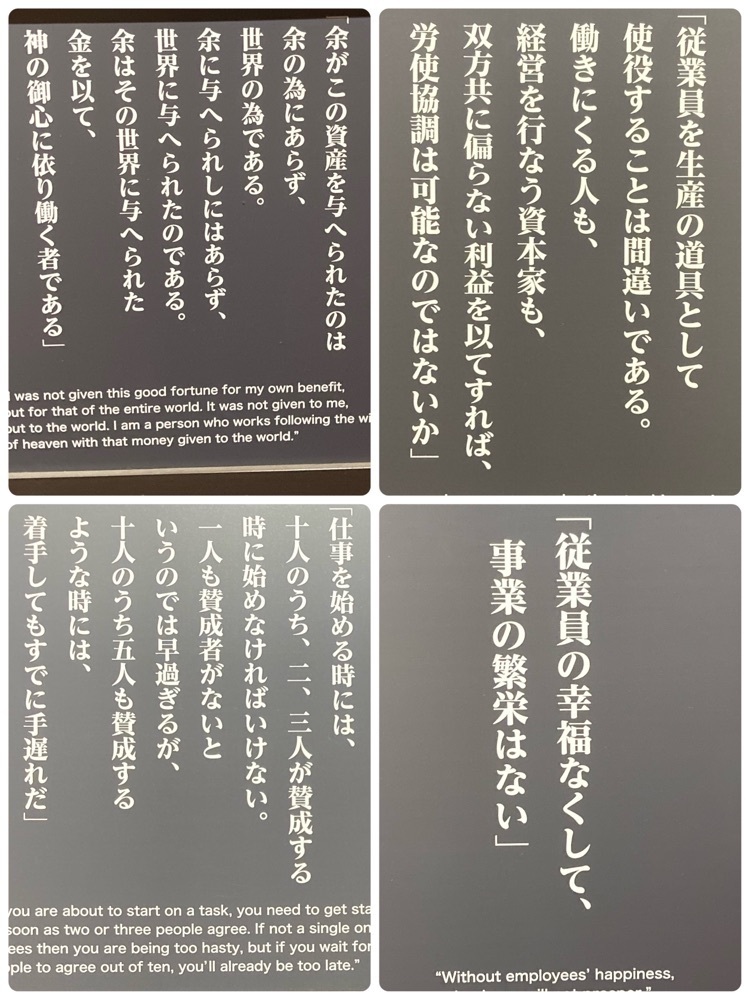 「余がこの資産を与へられたのは
余の為にあらず、
世界の為である。
余に与へられしにはあらず、
世界に与へられたのである。
余はその世界に与へられた
金を以て、
神の御心に依り働く者である」
I was not given this good fortune for my own benefit,
but for that of the entire world. It was not given to me,
but to the world. I am a person who works following the wi
of heaven with that money given to the world.”
「従業員を生産の道具として
使役することは間違いである。
働きにくる人も、
経営を行なう資本家も、
双方共に偏らない利益を以てすれば、
労使協調は可能なのではないか」
「仕事を始める時には、
十人のうち、二、三人が賛成する
時に始めなければいけない。
一人も賛成者がないと
いうのでは早過ぎるが、
十人のうち五人も賛成する
ような時には、
着手してもすでに手遅れだ」
you are about to start on a task, you need to get sta
soon as two or three people agree. If not a single on
ees then you are being too hasty, but if you wait for
ople to agree out of ten, you'll already be too late.”
「従業員の幸福なくして、
事業の繁栄はない」
“Without employees’ happiness,